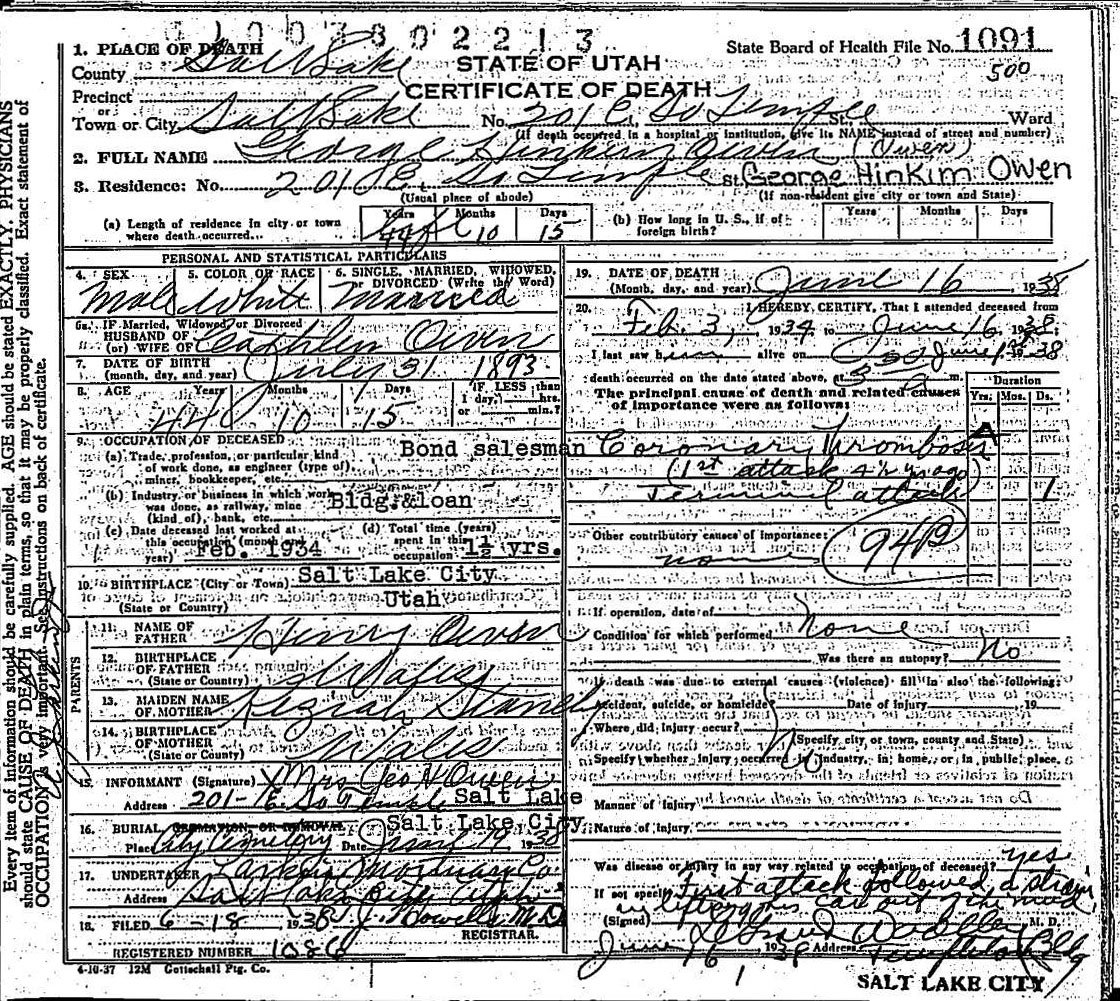 1007802213
State Board of Health File No. 1091
500
STATE OF UTAH
CERTIFICATE OF DEATH
1. PLACE OF DEATH
County Salt Lake
Precinct
or
Town or City Salt Lake No. 201 E. So Temple St. Ward
(If death occurred in a hospital or institution, give its NAME instead of street and number)
2. FULL NAME George Hinkim Owen (Owen)
3. Residence: No. 201 E. So Temple St. George Hinkim Owen
(Usual place of abode) (If non-resident give city or town and State)
(a) Length of residence in city or town where death occurred Years 44 Months 10 Days 15
(b) How long in U. S., if of foreign birth? Years Months Days
PERSONAL AND STATISTICAL PARTICULARS
4. SEX Male
5. COLOR OR RACE White
6. SINGLE, MARRIED, WIDOWED, or DIVORCED (Write the Word) Married
6a. If Married, Widowed or Divorced
HUSBAND OF
(or) WIFE OF Owen
7. DATE OF BIRTH
(month, day, and year) July 31 1893
8. AGE Years 44 Months 10 Days 15 IF LESS than 1 day, hrs. or min.?
9. OCCUPATION OF DECEASED
(a) Trade, profession, or particular kind of work done, as engineer (type of), miner, bookkeeper, etc. Bond salesman
(b) Industry or business in which work was done, as railway, mine (kind of), bank, etc. Bldg. & loan
(c) Date deceased last worked at this occupation (month and year) Feb. 1934
(d) Total time (years) spent in this occupation 1½ yrs.
10. BIRTHPLACE (City or Town) Salt Lake City
(State or Country) Utah
PARENTS
11. NAME OF FATHER Henry Owen
12. BIRTHPLACE OF FATHER
(State or Country) Wales
13. MAIDEN NAME OF MOTHER Keziah
14. BIRTHPLACE OF MOTHER
(State or County) Wales
15. INFORMANT (Signature) X Mrs Geo H Owen
Address 201 - E. So Temple Salt Lake
16. BURIAL, CREMATION, OR REMOVAL Salt Lake City
Place City Cemetery Date June 19 1938
17. UNDERTAKER Larkin Mortuary Co
Address Salt Lake City Utah
18. FILED 6-18 1938 M.D.
REGISTRAR.
REGISTERED NUMBER 1086
4-10-37 12M Gottschall Ptg. Co.
19. DATE OF DEATH
(Month, day, and year) June 16 1938
20. I HEREBY CERTIFY, That I attended deceased from
Feb. 3, 1934 to June 16, 1938
I last saw him alive on June 1938
death occurred on the date stated above, at m.
The principal cause of death and related causes of importance were as follows:
Duration
Yrs. Mos. Ds.
Coronary Thrombosis
(1st attack 4½ yrs ago)
Terminal attack 1
Other contributory causes of importance:
none
94B
If operation, date of
Condition for which performed None
Was there an autopsy? No
If death was due to external causes (violence) fill in also the following:
Accident, suicide, or homicide? Date of injury 19
Where did injury occur?
(Specify city or town, county and State)
Specify whether injury occurred in industry, in home, or in public place.
No
Manner of injury
Nature of injury
Was disease or injury in any way related to occupation of deceased? yes
If so, specify First attack followed a strain
in lifting his car out of the mud
(Signed) M. D.
June 16 1938 Address Templeton Bldg
SALT LAKE CITY
Every item of information should be carefully supplied. AGE should be stated EXACTLY. PHYSICIANS
should state CAUSE OF DEATH in plain terms, so that it may be properly classified. Exact statement of
OCCUPATION is very important. See instructions on back of certificate.